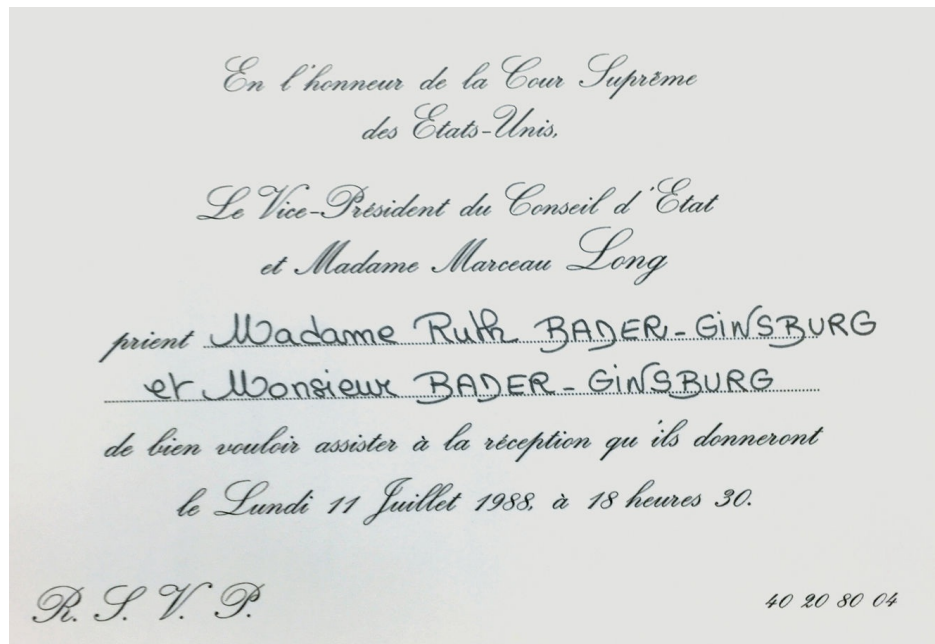 En l'honneur de la Cour Suprême
des Etats-Unis,
Le Vice-Président du Conseil d'Etat
et Madame Marceau Long
prient Madame Ruth BADER-GINSBURG
et Monsieur BADER-GINSBURG
de bien vouloir assister à la réception qu'ils donneront
le Lundi 11 Juillet 1988, à 18 heures 30.
R. S. V. P.
40 20 80 04